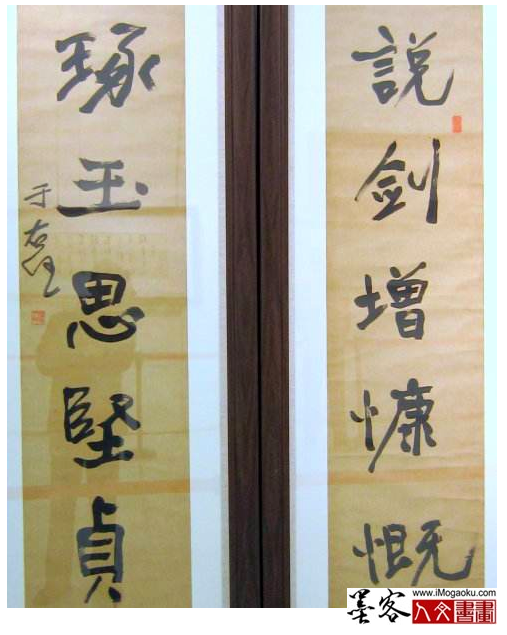 說劍增慷慨
琢玉思堅貞
于右任
墨客
www.iMogaoku.com
人文書畫